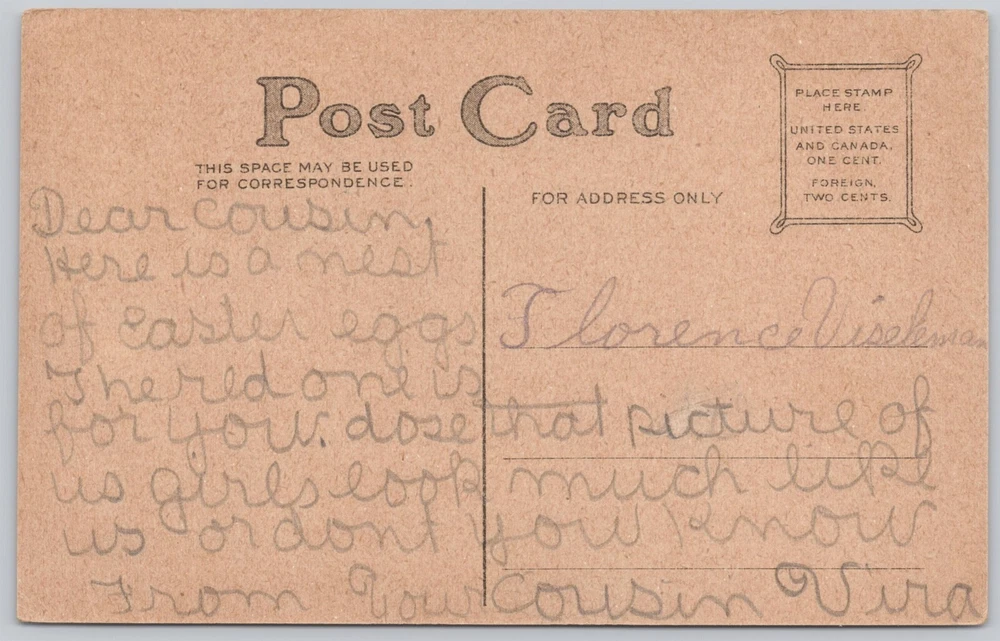 Post Card
THIS SPACE MAY BE USED
FOR CORRESPONDENCE.
FOR ADDRESS ONLY
PLACE STAMP
HERE.
UNITED STATES
AND CANADA,
ONE CENT.
FOREIGN,
TWO CENTS.
Dear Cousin,
Here is a nest
of Easter eggs
The red one is
for you. dose that picture of
us girls look much like
us or dont you know
From Your Cousin Vira
Florence